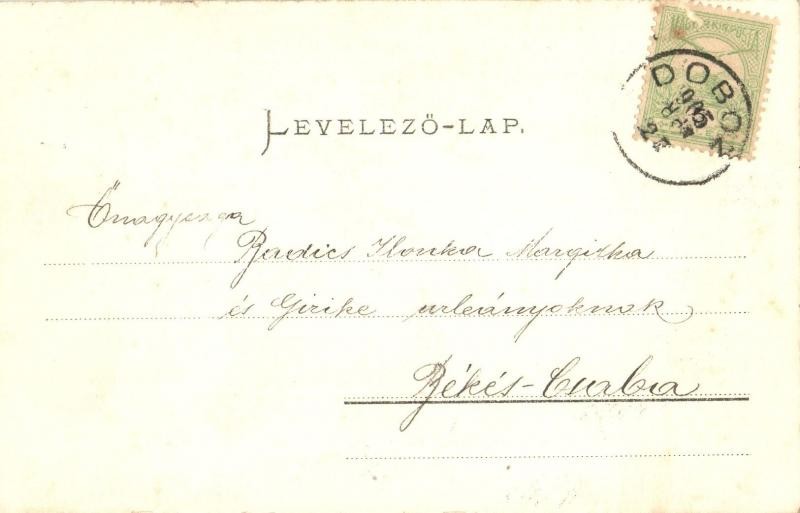 LEVELEZŐ-LAP.
DOBOZ
Őnagysága
Radics Ilonka Margitka
és Girike urleányoknak
Békés-Csaba